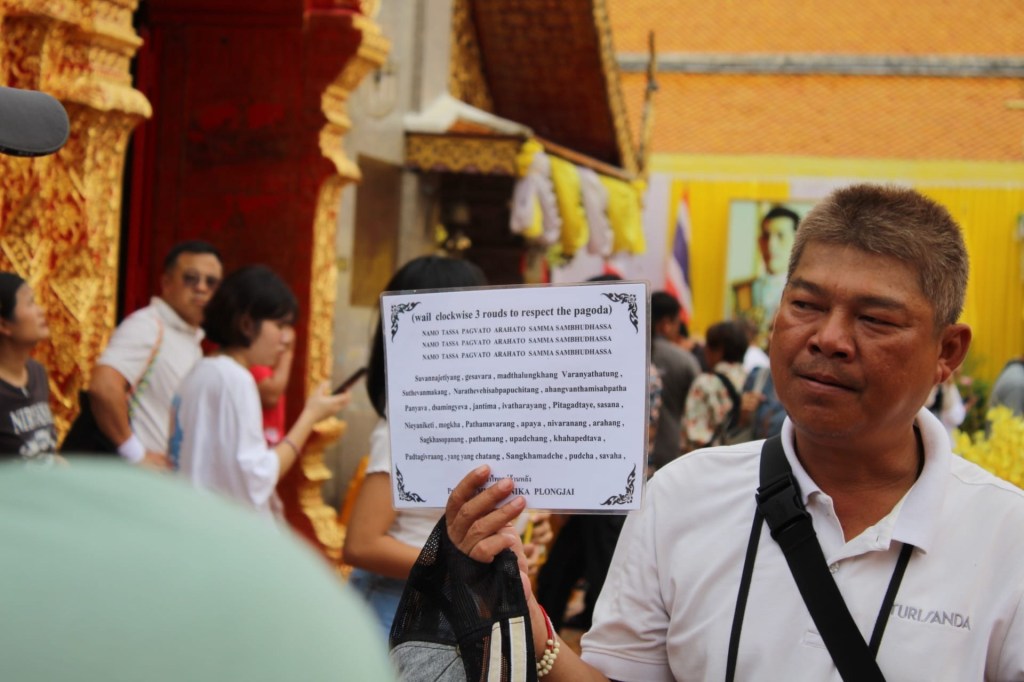 (wail clockwise 3 rouds to respect the pagoda)
NAMO TASSA PAGVATO ARAHATO SAMMA SAMBHUDHASSA
NAMO TASSA PAGVATO ARAHATO SAMMA SAMBHUDHASSA
NAMO TASSA PAGVATO ARAHATO SAMMA SAMBHUDHASSA
Suvannajetiyang , gesavara , madthalungkhang Varanyathatung ,
Suthuvanmakang , Narathevehisabpapuchitang , ahangvanthamisabpatha
Panyava , thamingyeva , jantima , ivatharayang , Pitagadtaye, sasana ,
Niryaniketi , mogkha , Pathamavarang , apaya , nivaranang , arahang ,
Sagkhasopanang , pathamang , upadchang , khahapedtava ,
Padtagivraang , yang yang chatang , Sangkhamadche , pudcha , savaha ,
NIKA PLONGJAI
TURISANDA